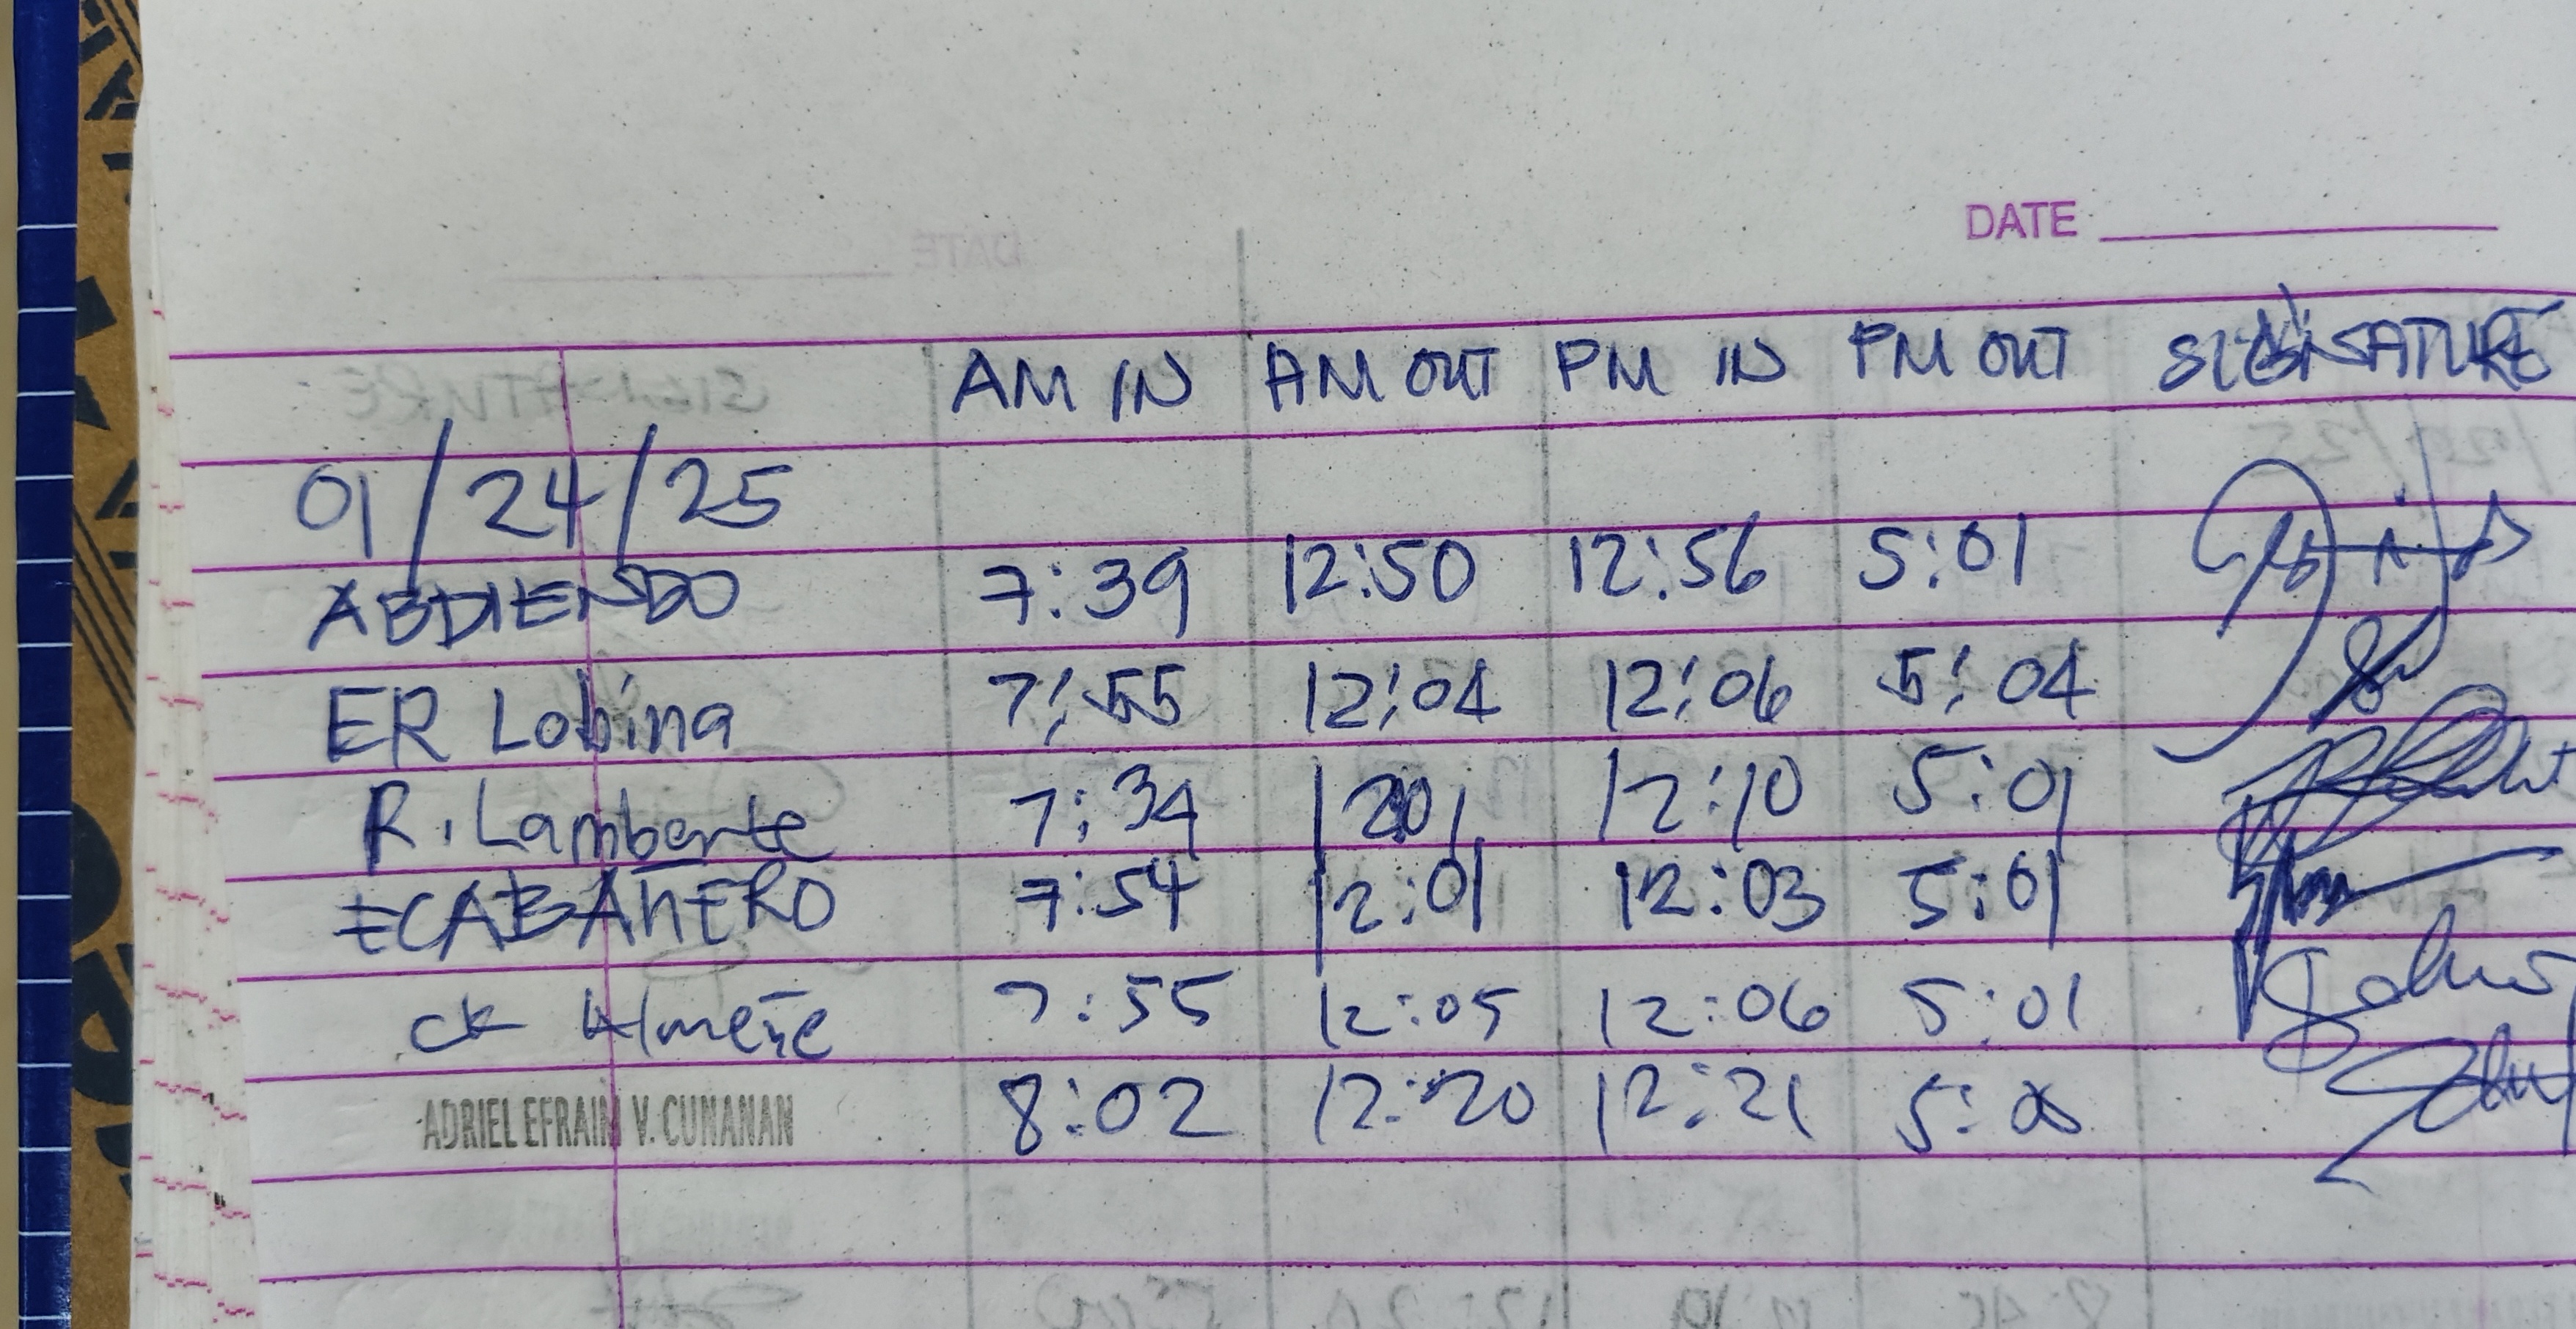 DATE
AM IN AM OUT PM IN PM OUT SIGNATURE
01/24/25
ABDIENDO 7:39 12:50 12:56 5:01
ER Lobina 7:55 12:04 12:06 5:04
R. Lamberte 7:34 1201 12:10 5:01
ECABAÑERO 7:54 12:01 12:03 5:01
CK 7:55 12:05 12:06 5:01
ADRIEL EFRAIN V. CUNANAN 8:02 12:20 12:21